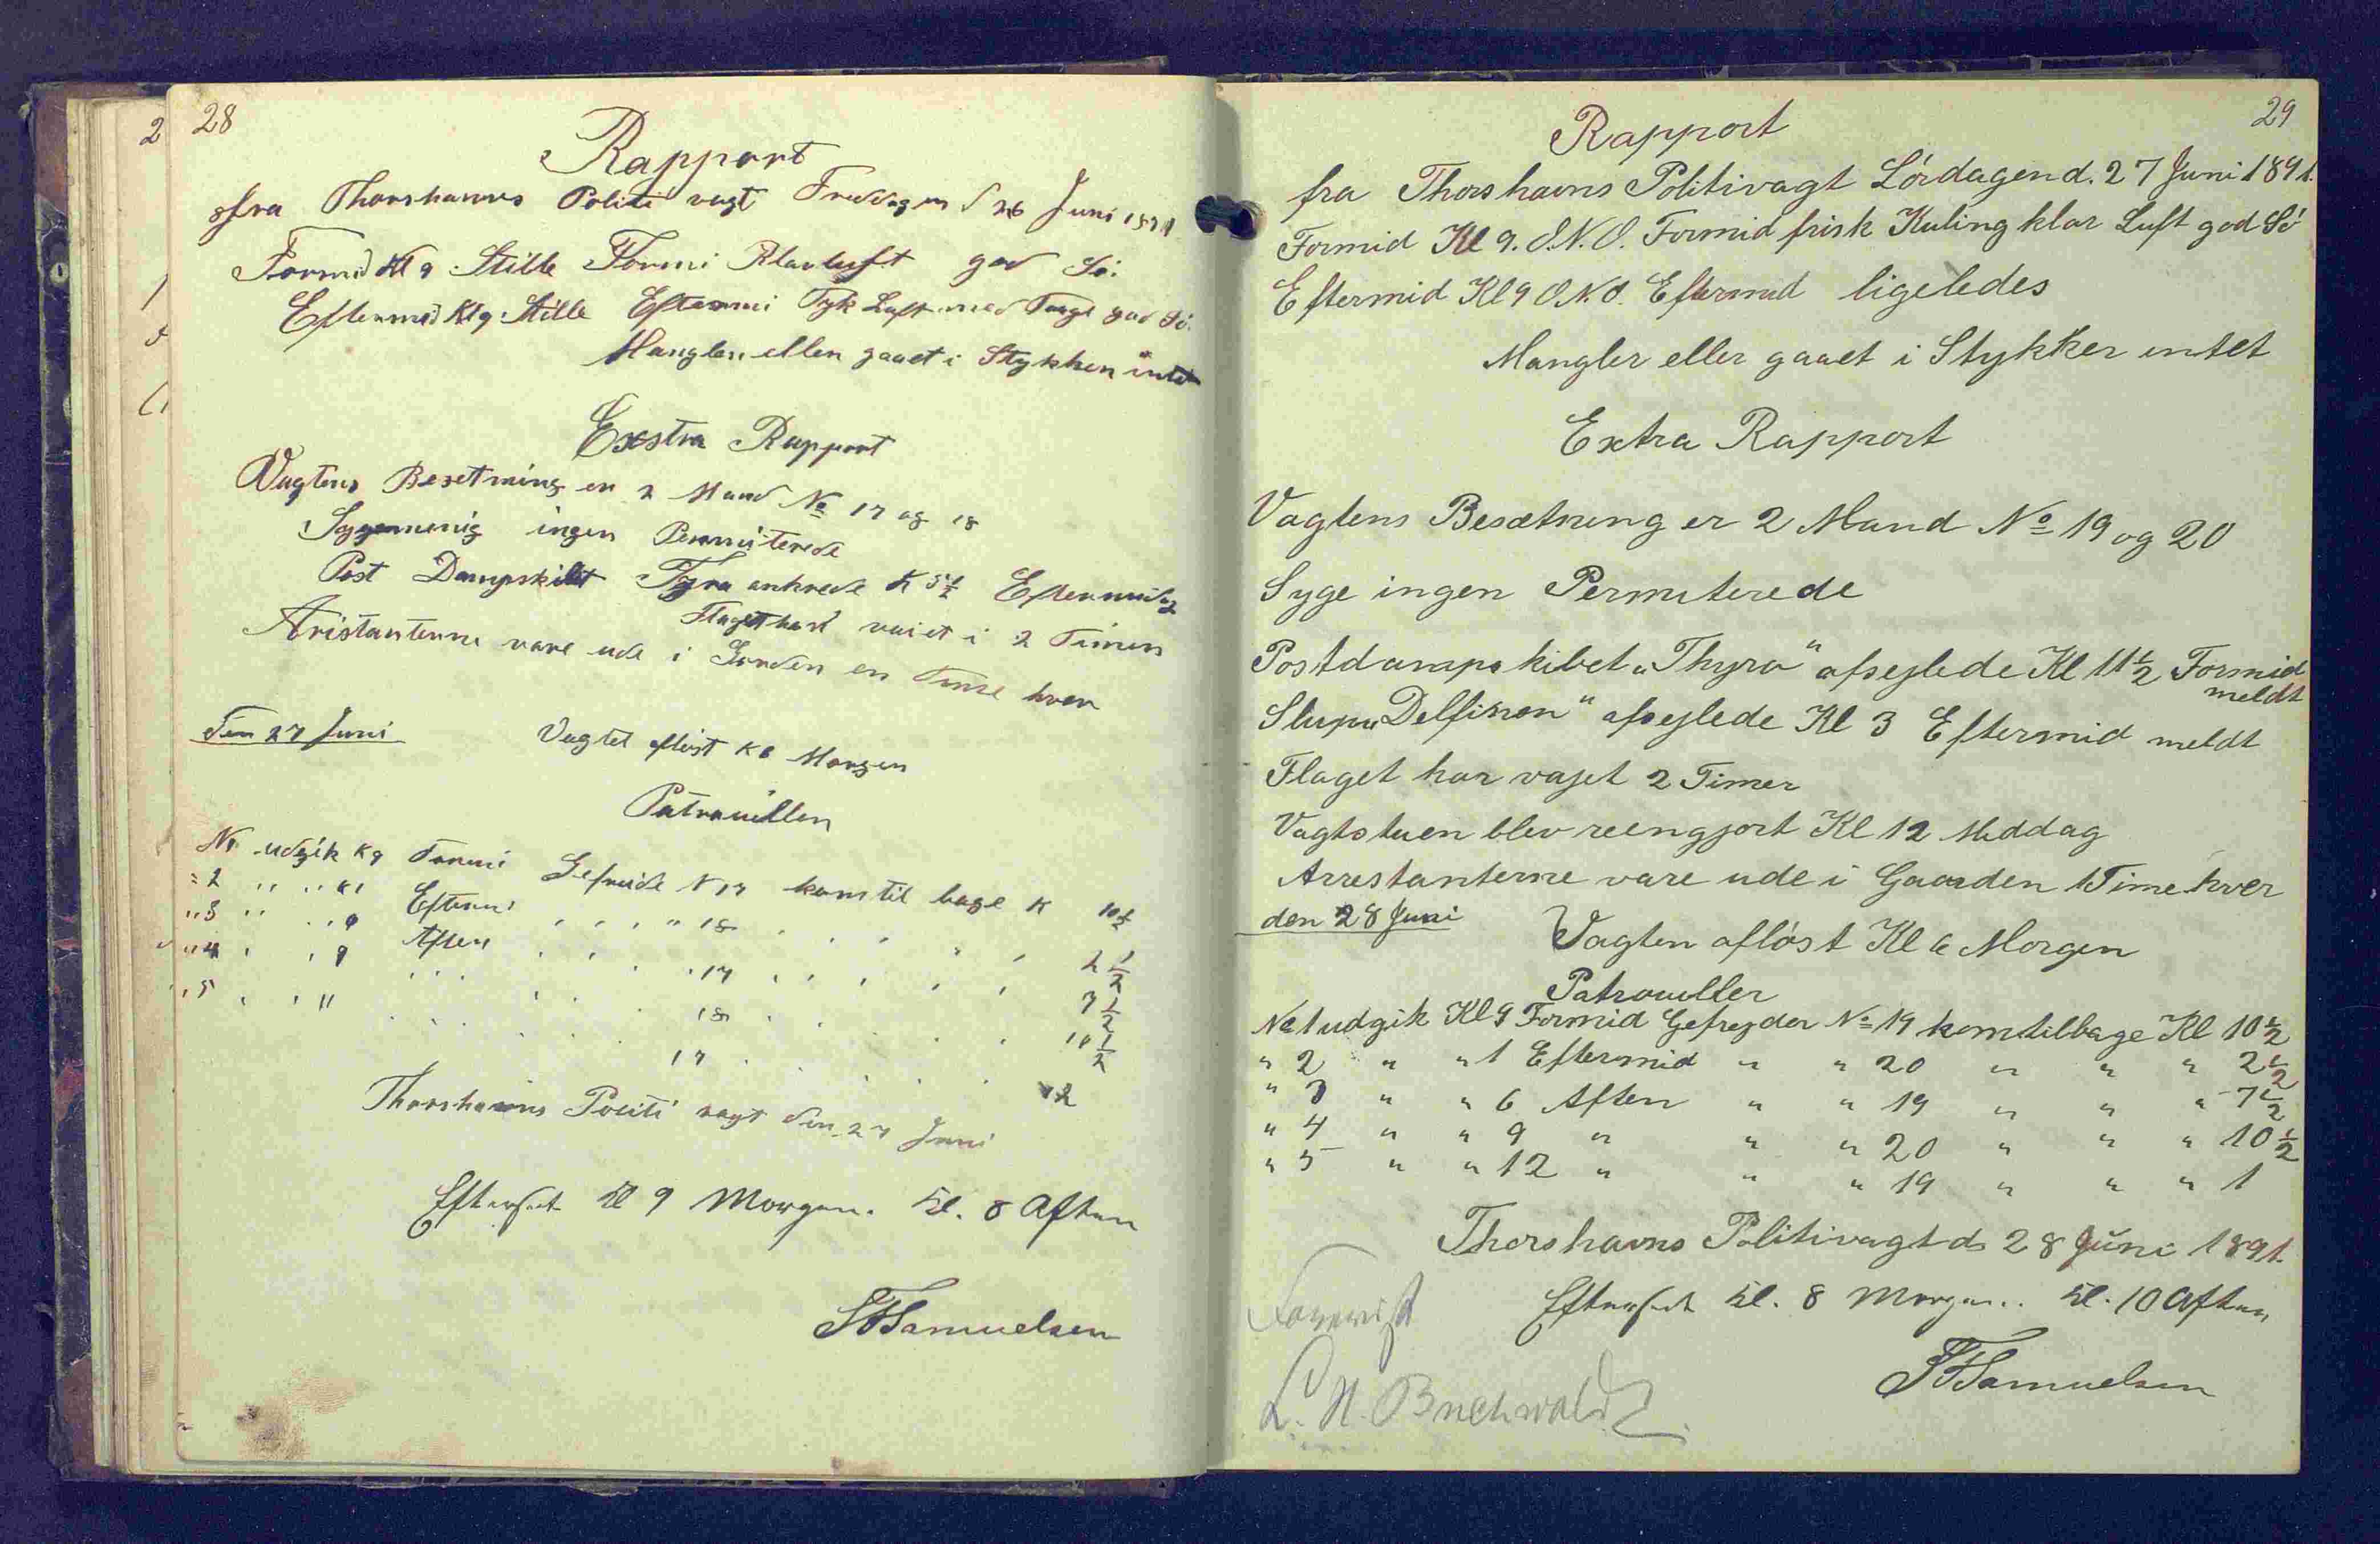 28
Rapport
fra Thorshavns Politi vagt Freddagen d 26 Juni 1891
Formid Kl 9 Stille Formi Klarluft god Sö.
Eftermid Kl 9 Stille Eftermi Tyk Luft med Taage god Sö.
Mangler eller gaaet i Stykker intet
Exstra Rapport
Vagtens Besetning er 2 Mand No 17 og 18
ingen Permiterede
Post Dampskibet Tyra ankrede K 5½ Eftermidag
Flaget har vaiet i 2 Timer
Aristanterne vare ude i Gorden en Time hver
Den 27 Juni
Vagtet aflöst K 6 Morgen
Patrouillen
No udgik K 9 Formi Gefreide N 17 kom til bage K 10½
" 2 " " K 1 Eftermi " " " " 18 " " " " " 2½
" 3 " " 6 Aften " " " " 17 " " " " " 7½
" 4 " " 9 " " " " 18 " " " " " 10½
" 5 " " 11 " " " " 17 " " " " " 12
Thorshavns Politi vagt den 27 Juni
Efterset Kl 9 Morgen. Kl. 8 Aften
Samuelsen
29
Rapport
fra Thorshavns Politivagt Lördagen d. 27 Juni 1891.
Formid Kl 9. O.N.O. Formid frisk Kuling klar Luft god Sö
Eftermid Kl 9 O.N.O. Eftermid ligeledes
Mangler eller gaaet i Stykker intet
Extra Rapport
Vagtens Besætning er 2 Mand No 19 og 20
Syge ingen Permiterede
Postdampskibet „Thyra" afsejlede Kl 11½ Formid
meldt
Slupen „Delfinen" afsejlede Kl 3 Eftermid meldt
Flaget har vajet 2 Timer
Vagtstuen blev reengjort Kl 12 Middag
Arrestanterne vare ude i Gaarden 1 Time hver
den 28 Juni
Vagten aflöst Kl 6 Morgen
Patrouiller
No 1 udgik Kl 9 Formid Gefrejder No 19 kom tilbage Kl 10½
" 2 " " 1 Eftermid " " 20 " " " 2½
" 3 " " 6 Aften " " 19 " " " 7½
" 4 " " 9 " " " 20 " " " 10½
" 5 " " 12 " " " 19 " " " 1
Thorshavns Politivagt d. 28 Juni 1891.
Efterset Kl. 8 Morgen. Kl. 10 Aften
Forevist
Samuelsen
L. H. Buchwaldt